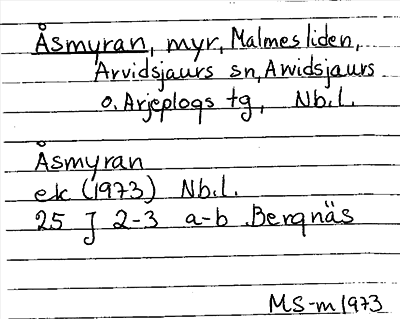 Åsmyran, myr, Malmesliden,
Arvidsjaurs sn, Arvidsjaurs
o. Arjeplogs tg, Nb.l.
Åsmyran
ek (1973) Nb.l.
25 J 2-3 a-b Bergnäs
MS-m 1973